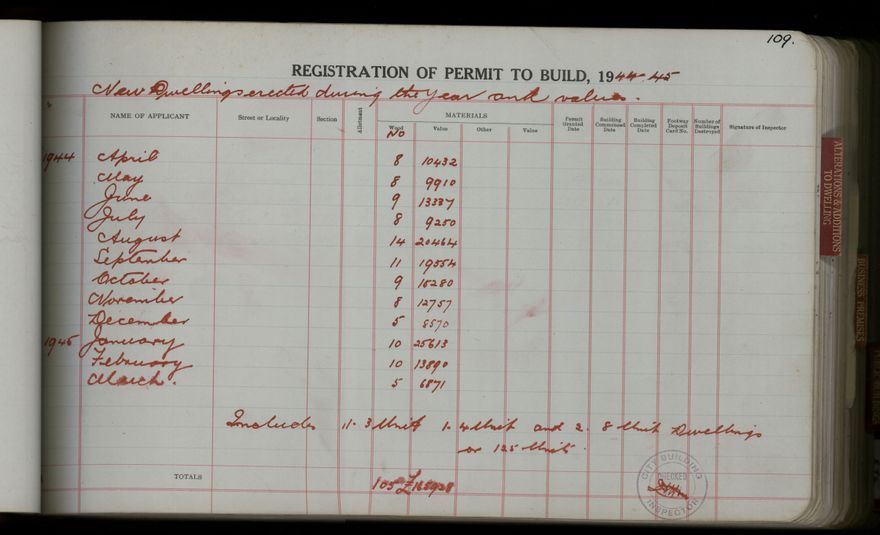 109.
REGISTRATION OF PERMIT TO BUILD, 1944-45
New Dwellings erected during the Year and values.
NAME OF APPLICANT Street or Locality Section Allotment MATERIALS Permit Granted Date Building Commenced Date Building Completed Date Footway Deposit Card No. Number of Buildings Destroyed Signature of Inspector
Wood Value Other Value
No
1944 April 8 10432
May 8 9910
June 9 13337
July 8 9250
August 14 20464
September 11 19554
October 9 15280
November 8 12757
December 5 8570
1945 January 10 25613
February 10 13890
March. 5 6871
Includes 11. 3 Unit 1. 4 Unit and 2. 8 Unit Dwellings
or 125 Units.
TOTALS 105 £165928
CITY BUILDING INSPECTOR
CHECKED
ALTERATIONS & ADDITIONS
TO DWELLING
BUSINESS PREMISES